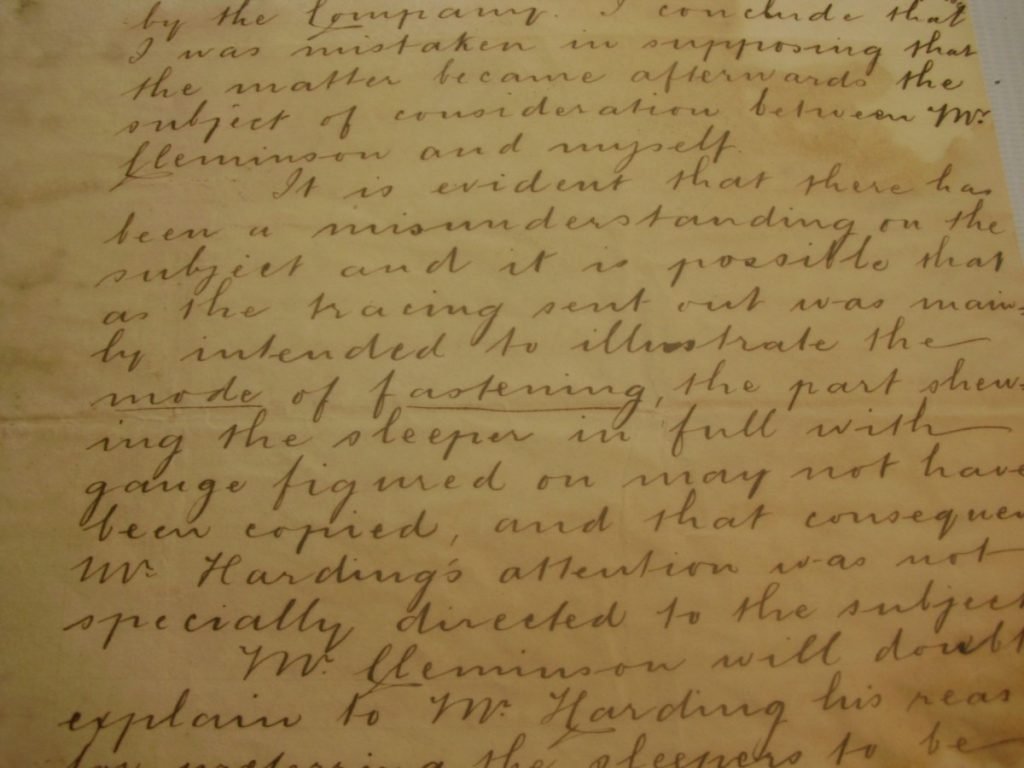 by the Company. I conclude that
I was mistaken in supposing that
the matter became afterwards the
subject of consideration between Mr.
Cleminson and myself.
It is evident that there has
been a misunderstanding on the
subject and it is possible that
as the tracing sent out was main-
ly intended to illustrate the
mode of fastening, the part shew-
ing the sleeper in full with
gauge figured on may not have
been copied, and that consequen
Mr. Harding's attention was not
specially directed to the subject
Mr. Cleminson will doubt
explain to Mr. Harding his reas
for preferring the sleepers to be